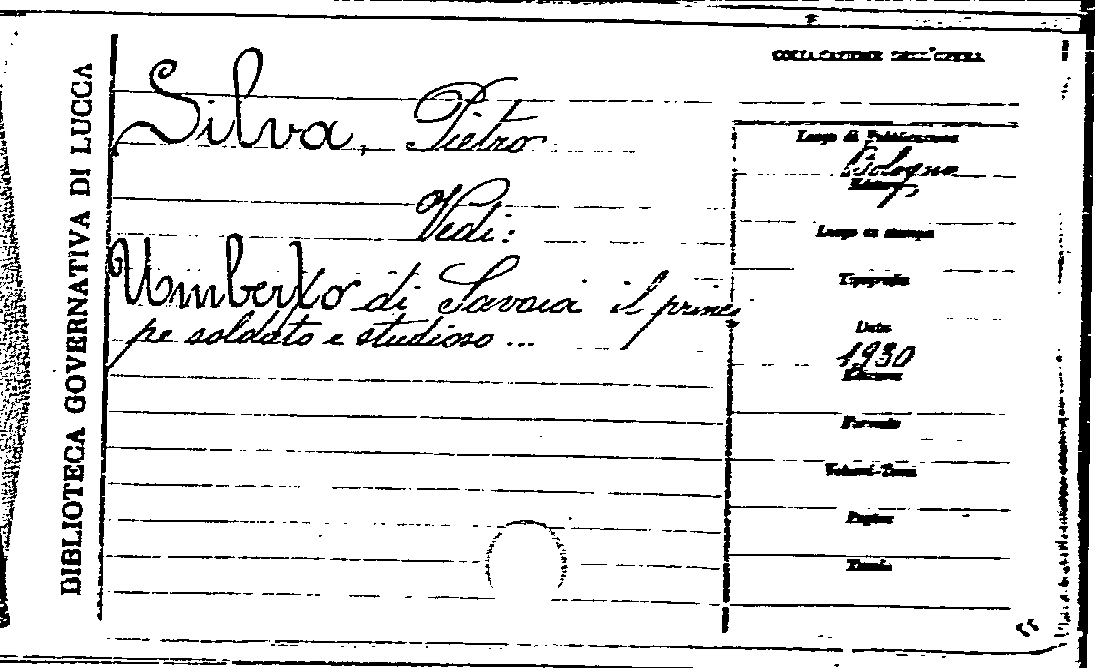 BIBLIOTECA GOVERNATIVA DI LUCCA
Silva, Pietro
Vedi:
Umberto di Savoia il princi
pe soldato e studioso ...
COLLOCAZIONE DELL'OPERA
Luogo di Pubblicazione
Bologna
Editore
Luogo di stampa
Tipografia
Data
1930
Edizione
Formato
Volumi-Tomi
Pagine
Tavole